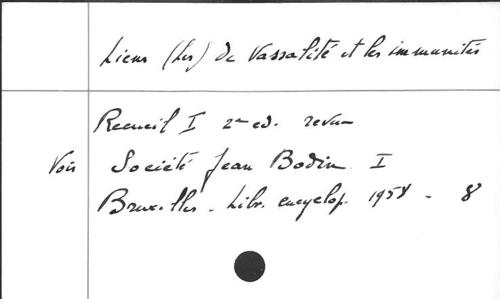 Liens (Les) de Vassalité et les immunités
Recueil I 2me ed. revue
Voir Société Jean Bodin I
Bruxelles. Libr. encyclop. 1958 - 8